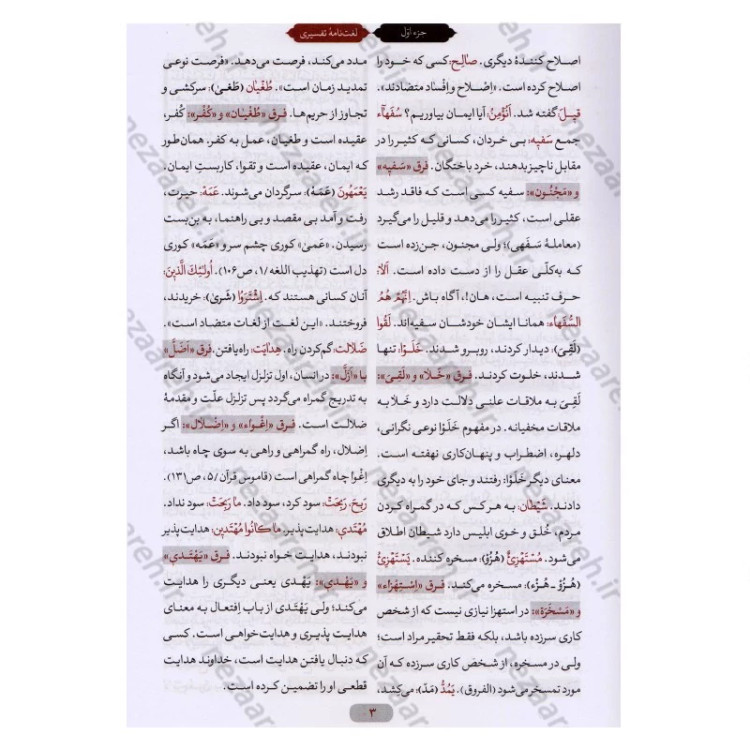 جزء اوّل
لغت‌نامهٔ تفسیری
اصلاح کنندهٔ دیگری. صالِح: کسی که خود را
اصلاح کرده است. «اِصْلاح و اِفْساد متضادند».
قیلَ گفته شد. أَنُؤْمِنُ: آیا ایمان بیاوریم؟ سُفَهَاء
جمع سَفیه: بی خردان، کسانی که کثیر را در
مقابل ناچیز بدهند، خرد باختگان. فرق «سَفیه»
و «مَجْنُون»: سفیه کسی است که فاقد رشد
عقلی است، کثیر را می‌دهد و قلیل را می‌گیرد
(معاملهٔ سَفَهی)؛ ولی مجنون، جن‌زده است
که به‌کلّی عقل را از دست داده است. أَلا:
حرف تنبیه است، هان!، آگاه باش. إِنَّهُمْ هُمُ
السُّفَهَاء: همانا ایشان خودشان سفیه‌اند. لَقُوا
(لَقِیَ): دیدار کردند، روبرو شدند. خَلَوْا: تنها
شدند، خلوت کردند. فرق «خَلا» و «لَقِیَ»:
لَقِیَ به ملاقات علنی دلالت دارد و خَلا به
ملاقات مخفیانه. در مفهوم خَلَوْا نوعی نگرانی،
دلهره، اضطراب و پنهان‌کاری نهفته است.
معنای دیگر خَلَوْا: رفتند و جای خود را به دیگری
دادند. شَیْطان: به هر کس که در گمراه کردن
مردم، خُلق و خوی ابلیس دارد شیطان اطلاق
می‌شود. مُسْتَهْزِئٌ (هُزُؤ): مسخره کننده. یَسْتَهْزِئُ
(هُزُؤ ـ هُزْء): مسخره می‌کند. فرق «اسْتِهْزاء»
و «مَسْخَرَة»: در استهزا نیازی نیست که از شخص
کاری سرزده باشد، بلکه فقط تحقیر مراد است؛
ولی در مسخره، از شخص کاری سرزده که آن
مورد تمسخر می‌شود (الفروق). یَمُدُّ (مَدّ): می‌کشد،
مدد می‌کند، فرصت می‌دهد. «فرصت نوعی
تمدید زمان است». طُغْیان (طَغیٰ): سرکشی و
تجاوز از حریم‌ها. فرق «طُغْیان» و «کُفْر»: کُفر،
عقیده است و طغیان، عمل به کفر. همان‌طور
که ایمان، عقیده است و تقوا، کاربستِ ایمان.
یَعْمَهُونَ (عَمَهُ): سرگردان می‌شوند. عَمَهْ: حیرت،
رفت و آمد بی مقصد و بی راهنما، به بن‌بست
رسیدن. «عَمیٰ» کوری چشم سر و «عَمَه» کوری
دل است (تهذیب اللغه /۱، ص۱۰۶). أُولَئِكَ الَّذِینَ:
آنان کسانی هستند که. اِشْتَرَوُا (شَریٰ): خریدند،
فروختند. «این لغت از لغات متضاد است».
ضَلالَت: گم کردن راه. هِدایَت: راه یافتن. فرق «اَضَلَّ»
با «اَزَلَّ»: در انسان، اول تزلزل ایجاد می‌شود و آنگاه
به تدریج گمراه می‌گردد پس تزلزل علّت و مقدمهٔ
ضلالت است. فرق «اِغْواء» و «اِضْلال»: اگر
اِضلال، راه گمراهی و راهی به سوی چاه باشد،
اِغْوا چاه گمراهی است (قاموس قرآن /۵، ص۱۳۱).
رَبِحَ، رَبِحَتْ: سود کرد، سود داد. ما رَبِحَتْ: سود نداد.
مُهْتَدِي: هدایت‌پذیر. ما کانُوا مُهْتَدِینَ: هدایت‌پذیر
نبودند، هدایت خواه نبودند. فرق «یَهْتَدي»
و «یَهْدي»: یَهْدی یعنی دیگری را هدایت
می‌کند؛ ولی یَهْتَدی از باب اِفتعال به معنای
هدایت پذیری و هدایت‌خواهی است. کسی
که دنبال یافتن هدایت است، خداوند هدایت
قطعی او را تضمین کرده است.
۳
nezaareh.ir